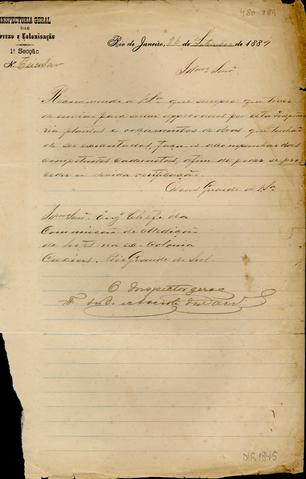 INSPECTORIA GERAL
DAS
TERRAS E Colonisação
1ª Secção
N. Circular
480-484
Rio de Janeiro, 26 de Setembro de 1889
Illmo Snr.
Recommendo a VSª que sempre que tiver
de enviar para serem approvados por esta Inspec
toria plantas e orçamentos de obras que tenham
de ser executadas, faça-as acompanhar das
competentes cadernetas, afim de poder se pro
ceder á devida verificação.
Deus Guarde a VSª
Illmo Snr. Engº Chefe da
Commissão de Medição
de Lotes na ex-Colonia
Caxias. Rio Grande do Sul
O Inspector geral
DIR 1845